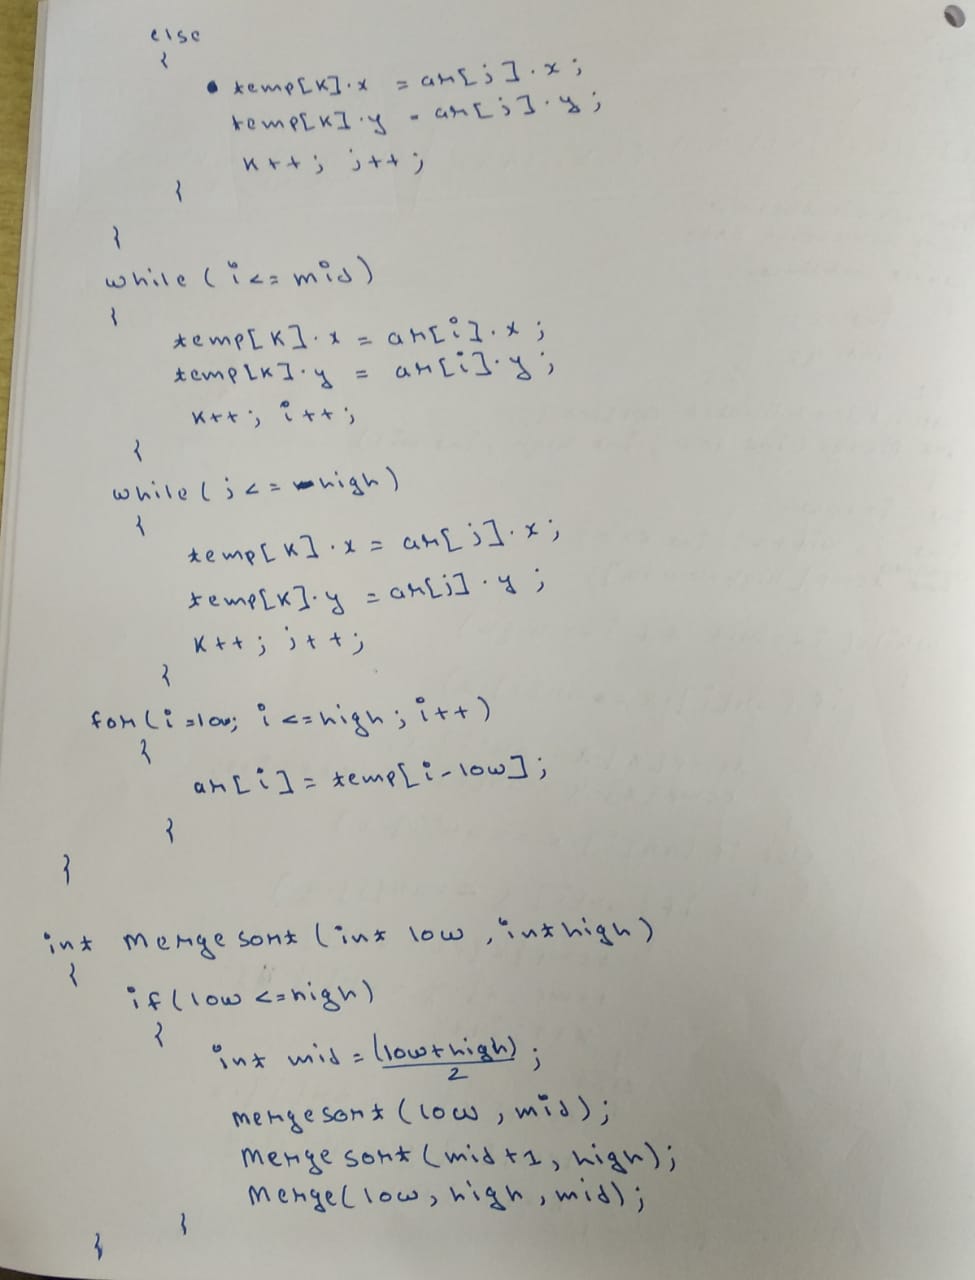 else
{
temp[k].x = ar[j].x;
temp[k].y = ar[j].y;
k++; j++;
}
}
while(i<=mid)
{
temp[k].x = ar[i].x;
temp[k].y = ar[i].y;
k++; i++;
}
while(j<=high)
{
temp[k].x = ar[j].x;
temp[k].y = ar[j].y;
k++; j++;
}
for(i=low; i<=high; i++)
{
ar[i] = temp[i-low];
}
}
int mergesort(int low, int high)
{
if(low<=high)
{
int mid = (low+high)/2;
mergesort(low, mid);
mergesort(mid+1, high);
Merge(low, high, mid);
}
}